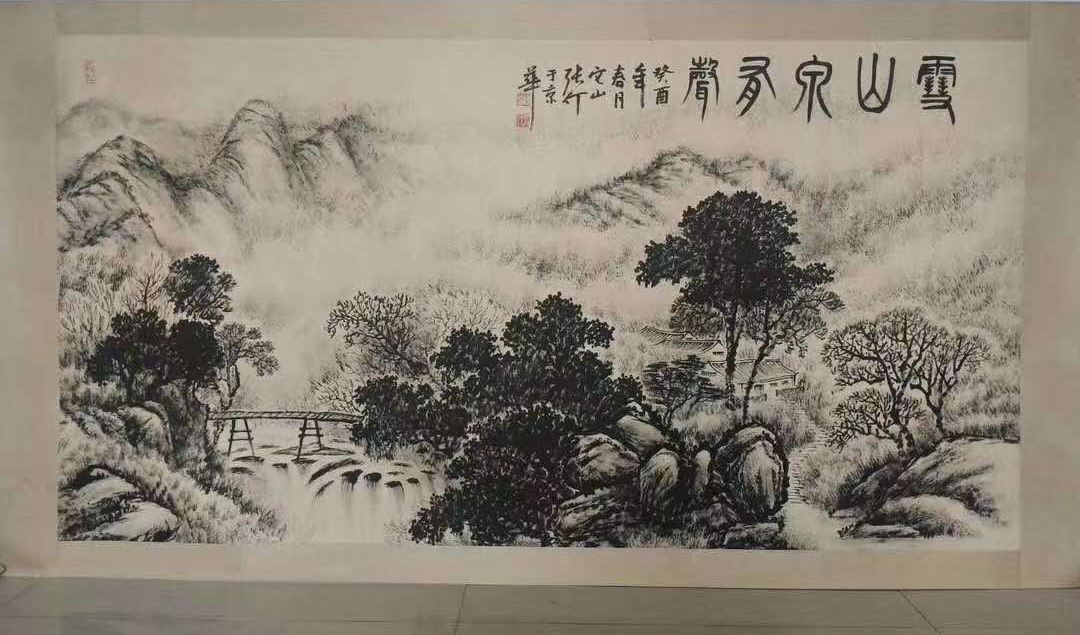 雪山泉有聲
癸酉
年
春月
定山
张
于京
華